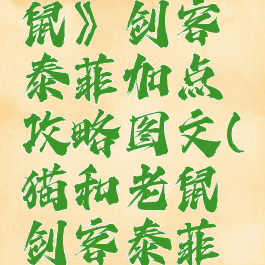 鼠》剑客
泰菲加点
攻略图文(
猫和老鼠
剑客泰菲